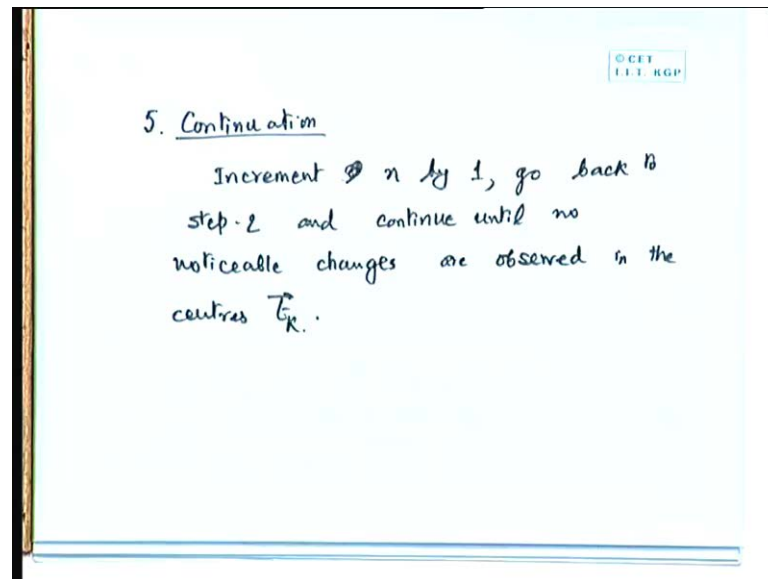 © CET
I.I.T. KGP
5. Continuation
Increment n by 1, go back to
step-2 and continue until no
noticeable changes are observed in the
centres t⃗k.